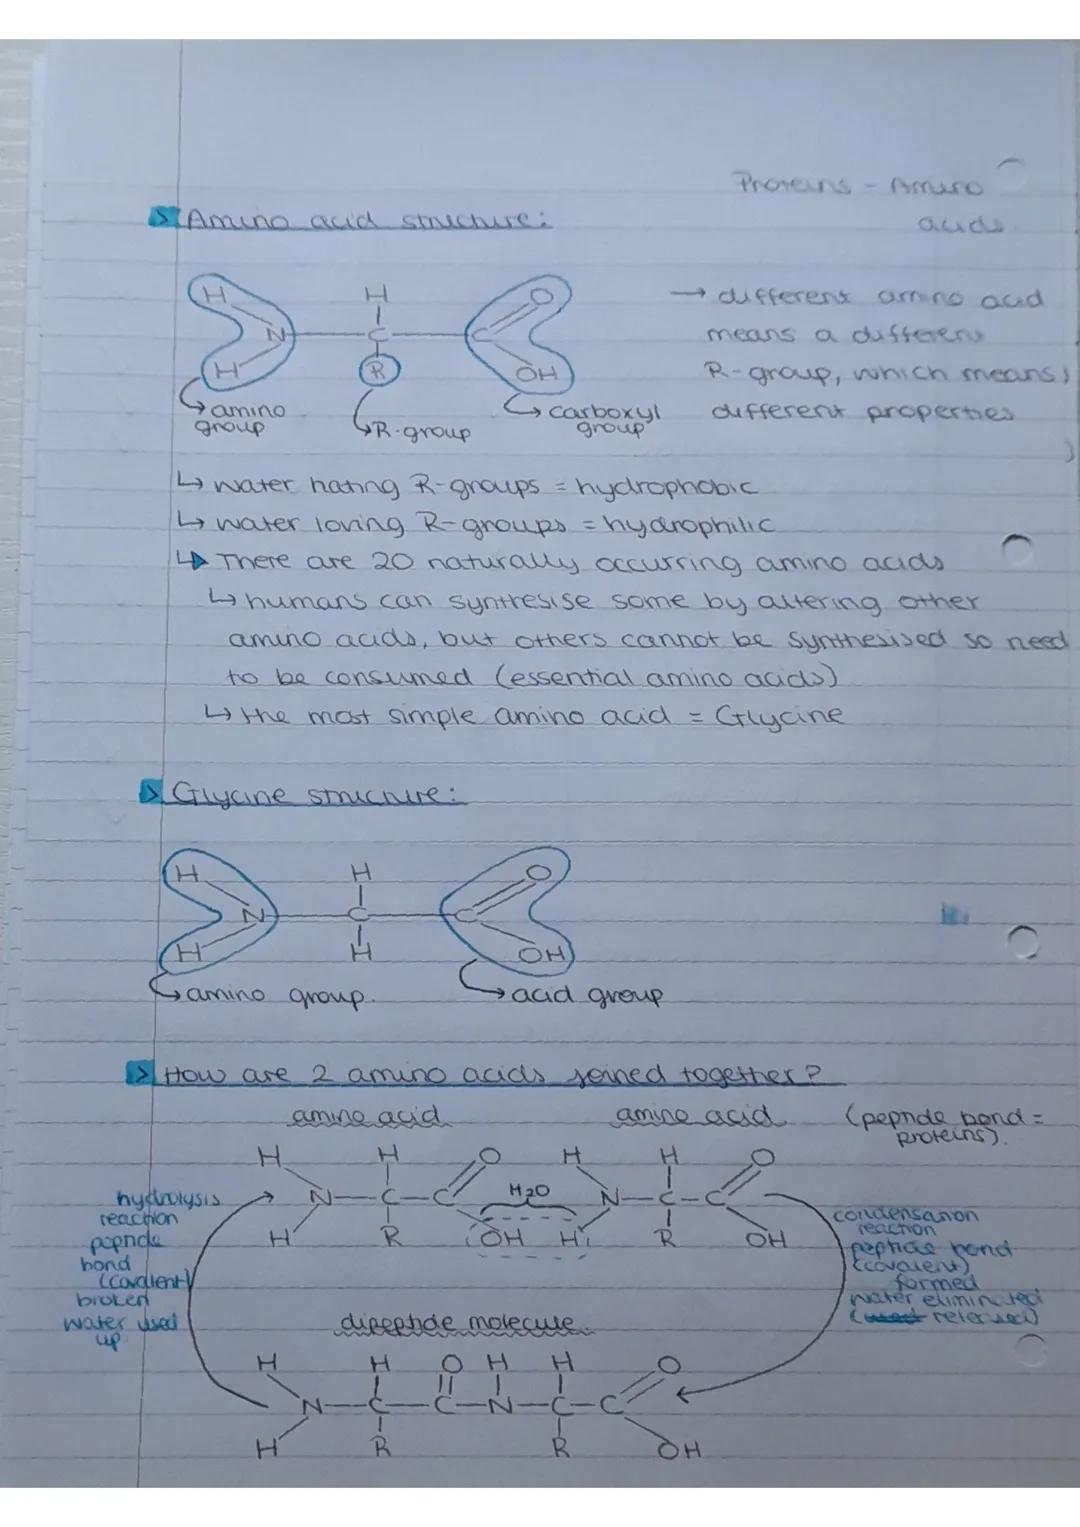 Proteins - Amino
acids
> Amino acid structure:
H H O
N C C
H R OH
→ different amino acid
means a different
R-group, which means
different properties
↳ amino
group
↳ R-group
↳ carboxyl
group
↳ water hating R-groups = hydrophobic
↳ water loving R-groups = hydrophilic
↳ There are 20 naturally occurring amino acids
↳ humans can synthesise some by altering other
amino acids, but others cannot be synthesised so need
to be consumed (essential amino acids)
↳ the most simple amino acid = Glycine
> Glycine structure:
H H O
N C C
H H OH
↳ amino group.
↳ acid group
> How are 2 amino acids joined together?
amino acid amino acid (peptide bond =
proteins).
H H O H H O
N-C-C H2O N-C-C
H R OH H R OH
hydrolysis
reaction
peptide
bond
(covalent)
broken
water used
up
condensation
reaction
peptide bond
(covalent)
formed
water eliminated
(used released)
dipeptide molecule.
H H O H H O
N-C-C-N-C-C
H R R OH